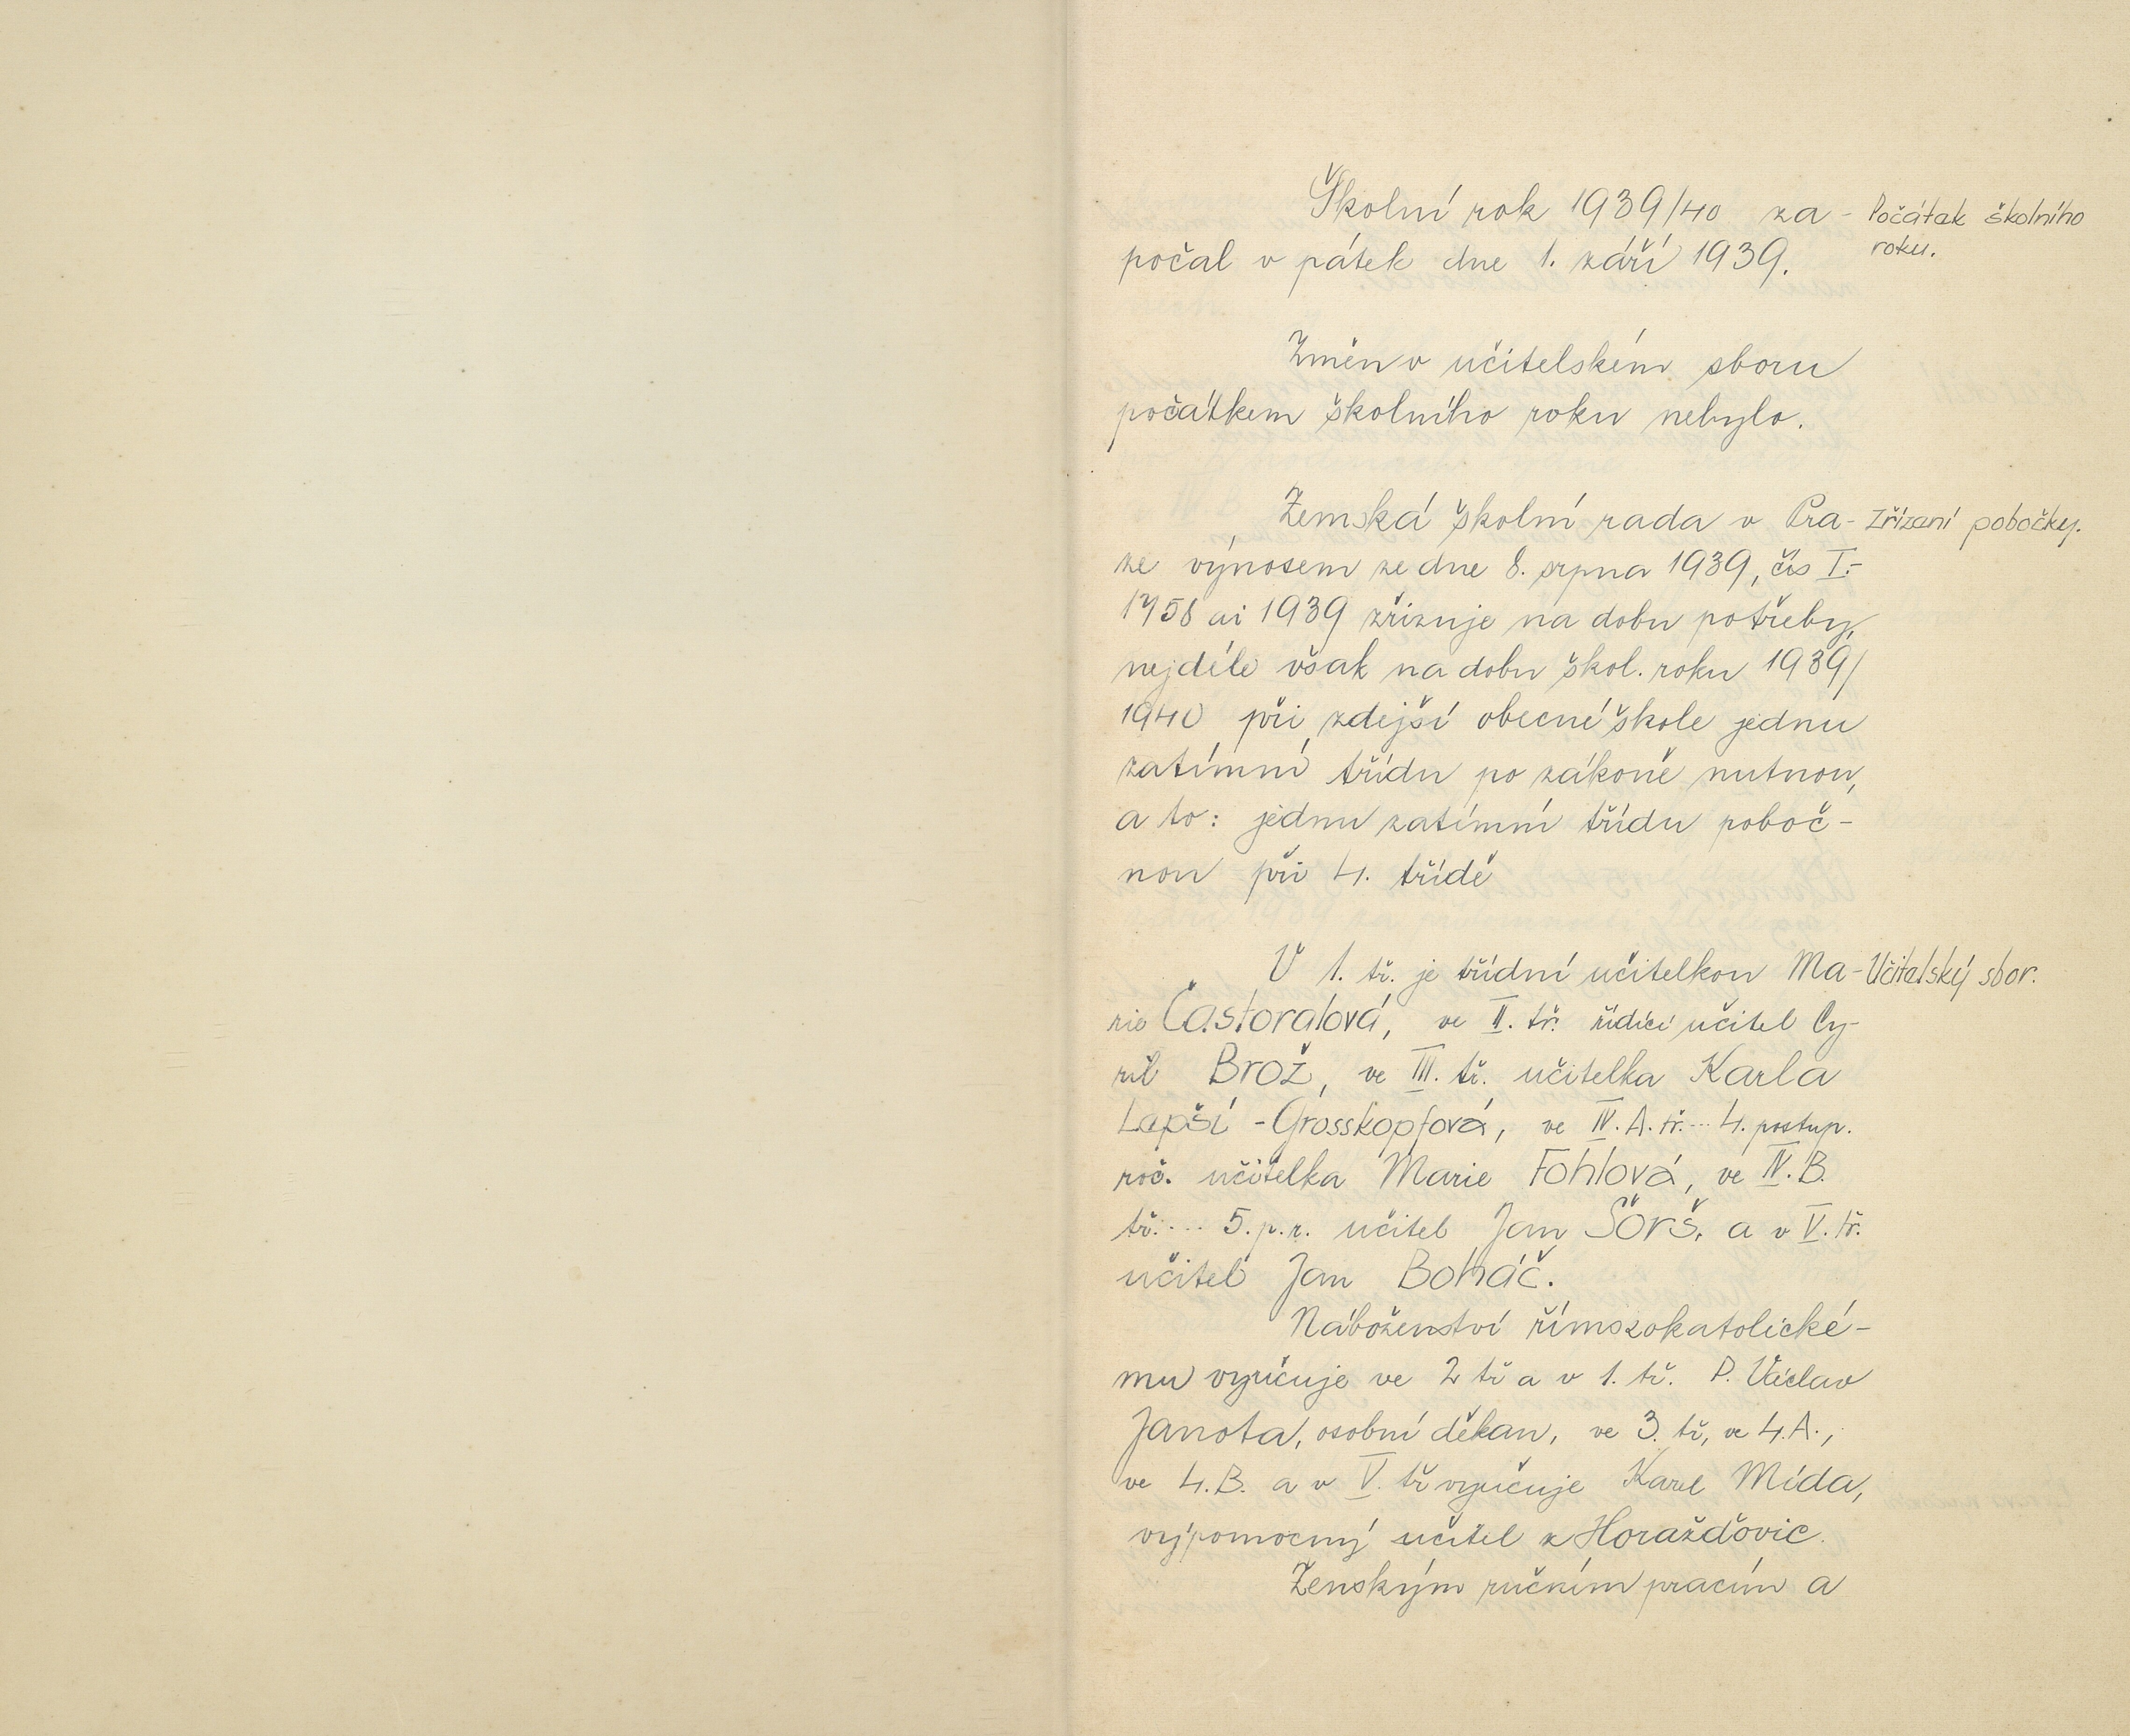 Školní rok 1939/40 za-
Počátek školního
roku.
počal v pátek dne 1. září 1939.
Změn v učitelském sboru
počátkem školního roku nebylo.
Zemská školní rada v Pra-
Zřízení pobočky.
ze výnosem ze dne 8. srpna 1939, čís I.-
1758 ai 1939 zřizuje na dobu potřeby,
nejdéle však na dobu škol. roku 1939/
1940 při zdejší obecné škole jednu
zatímní třídu po zákoně nutnou,
a to: jednu zatímní třídu poboč-
nou při 4. třídě
V 1. tř. je třídní učitelkou Ma-
Učitelský sbor.
rie Častoralová, ve II. tř. řídící učitel Cy-
ril Brož, ve III. tř. učitelka Karla
Lepší-Grosskopfová, ve IV. A. tř.... 4. postup.
roč. učitelka Marie Fohlová, ve IV. B.
tř.... 5. p. r. učitel Jan Šörš, a v V. tř.
učitel Jan Boháč.
Náboženství římskokatolické-
mu vyučuje ve 2 tř a v 1. tř. P. Václav
Janota, osobní děkan, ve 3. tř, ve 4. A.,
ve 4. B. a v V. tř vyučuje Karel Mída,
výpomocný učitel z Horažďovic.
Ženským ručním pracím a